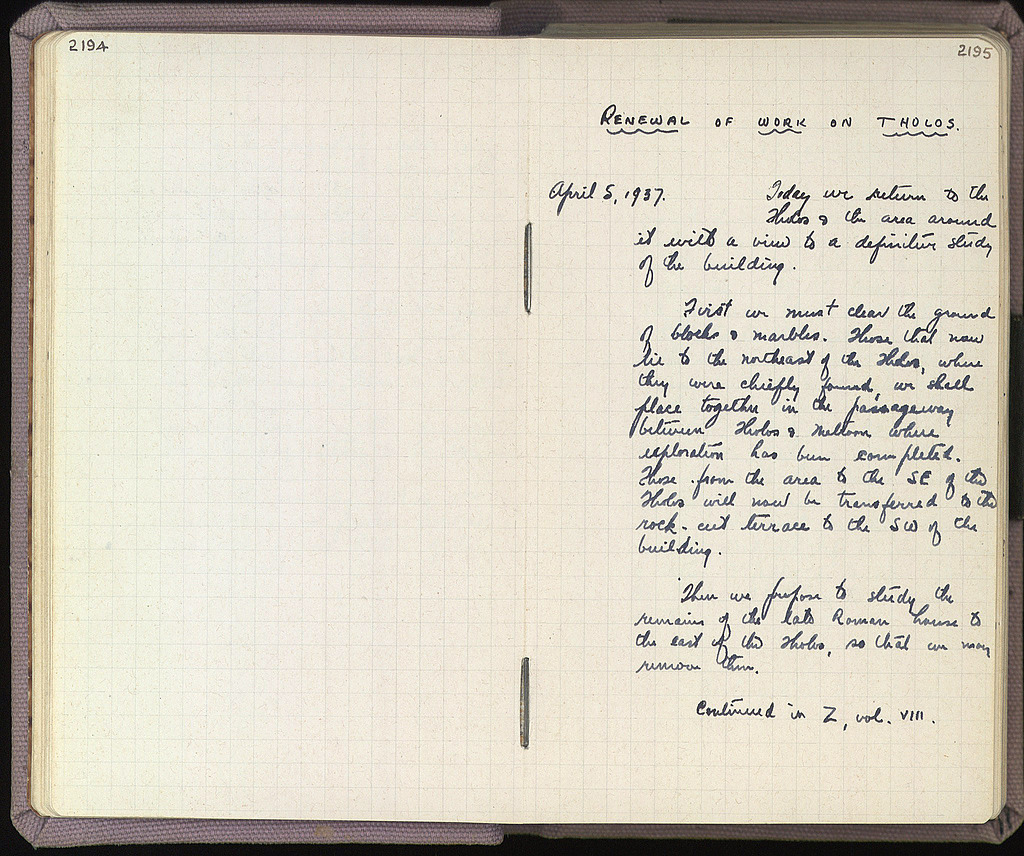 2194
2195
RENEWAL OF WORK ON THOLOS.
April 5, 1937. Today we return to the
Tholos & the area around
it with a view to a definitive study
of the building.
First we must clear the ground
of blocks & marbles. Those that now
lie to the northeast of the Tholos, where
they were chiefly found, we shall
place together in the passageway
between Tholos & Metroon where
exploration has been completed.
Those from the area to the SE of the
Tholos will now be transferred to the
rock-cut terrace to the SW of the
building.
Then we propose to study the
remains of the late Roman house to
the east of the Tholos, so that we may
remove them.
Continued in Z, vol. VIII.